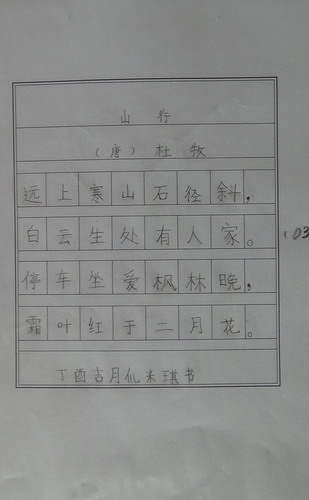 山行
（唐）杜牧
远上寒山石径斜，
白云生处有人家。
停车坐爱枫林晚，
霜叶红于二月花。
丁酉吉月 米琪书
103